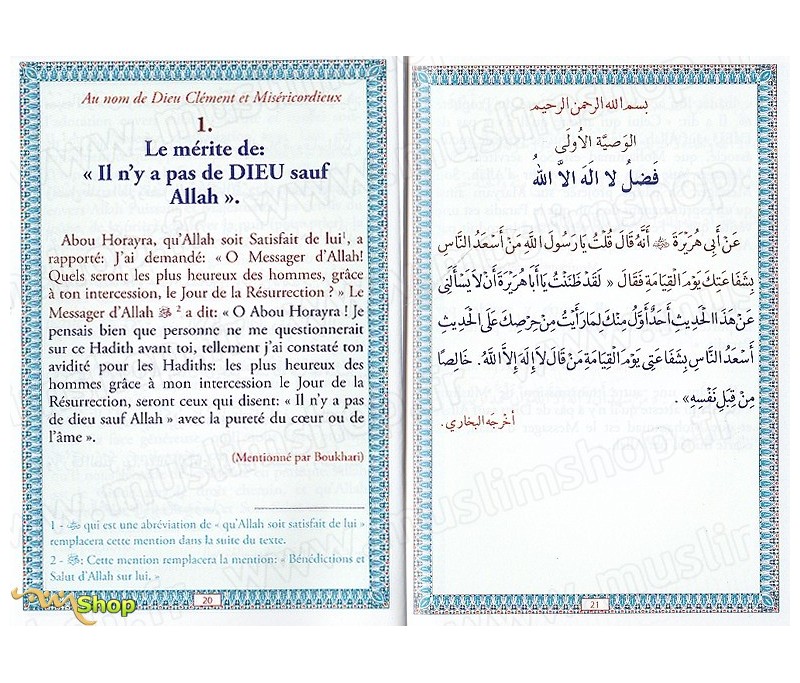 Au nom de Dieu Clément et Miséricordieux
1.
Le mérite de:
« Il n’y a pas de DIEU sauf
Allah ».
Abou Horayra, qu’Allah soit Satisfait de lui¹, a
rapporté: J’ai demandé: « O Messager d’Allah!
Quels seront les plus heureux des hommes, grâce
à ton intercession, le Jour de la Résurrection ? » Le
Messager d’Allah ﷺ ² a dit: « O Abou Horayra ! Je
pensais bien que personne ne me questionnerait
sur ce Hadith avant toi, tellement j’ai constaté ton
avidité pour les Hadiths: les plus heureux des
hommes grâce à mon intercession le Jour de la
Résurrection, seront ceux qui disent: « Il n’y a pas
de dieu sauf Allah » avec la pureté du cœur ou de
l’âme ».
(Mentionné par Boukhari)
1 - ﷺ qui est une abréviation de « qu’Allah soit satisfait de lui »
remplacera cette mention dans la suite du texte.
2 - ﷺ: Cette mention remplacera la mention: « Bénédictions et
Salut d’Allah sur lui. »
20
Shop
بسم الله الرحمن الرحيم
الوَصيَّة الأُولَى
فَضلُ لا الَهَ الاَّ اللهُ
عَنْ أَبِي هُرَيْرَةَ أَنَّهُ قَالَ قُلْتُ يَا رَسُولَ اللَّهِ مَنْ أَسْعَدُ النَّاسِ
بِشَفَاعَتِكَ يَوْمَ الْقِيَامَةِ فَقَالَ « لَقَدْ ظَنَنْتُ يَا أَبَا هُرَيْرَةَ أَنْ لاَ يَسْأَلَنِي
عَنْ هَذَا الْحَدِيثِ أَحَدٌ أَوَّلُ مِنْكَ لِمَا رَأَيْتُ مِنْ حِرْصِكَ عَلَى الْحَدِيثِ
أَسْعَدُ النَّاسِ بِشَفَاعَتِي يَوْمَ الْقِيَامَةِ مَنْ قَالَ لاَ إِلَهَ إِلاَّ اللَّهُ. خَالِصًا
مِنْ قِبَلِ نَفْسِهِ» .
أخرجَه البخاري.
21
www.muslimshop.fr